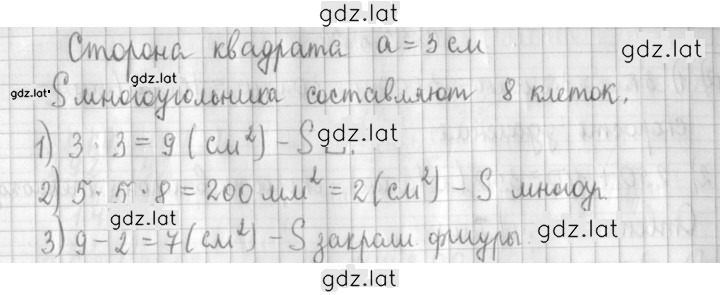 gdz.lat
Сторона квадрата a = 3 см gdz.lat
gdz.lat
gdz.lat S многоугольника составляют 8 клеток.
1) 3 · 3 = 9 (см²) – S gdz.lat
2) 5 · 5 · 8 = 200 мм² = 2 (см²) – S многоуг.
gdz.lat
3) 9 – 2 = 7 (см²) – S закраш. фигуры. gdz.lat
gdz.lat